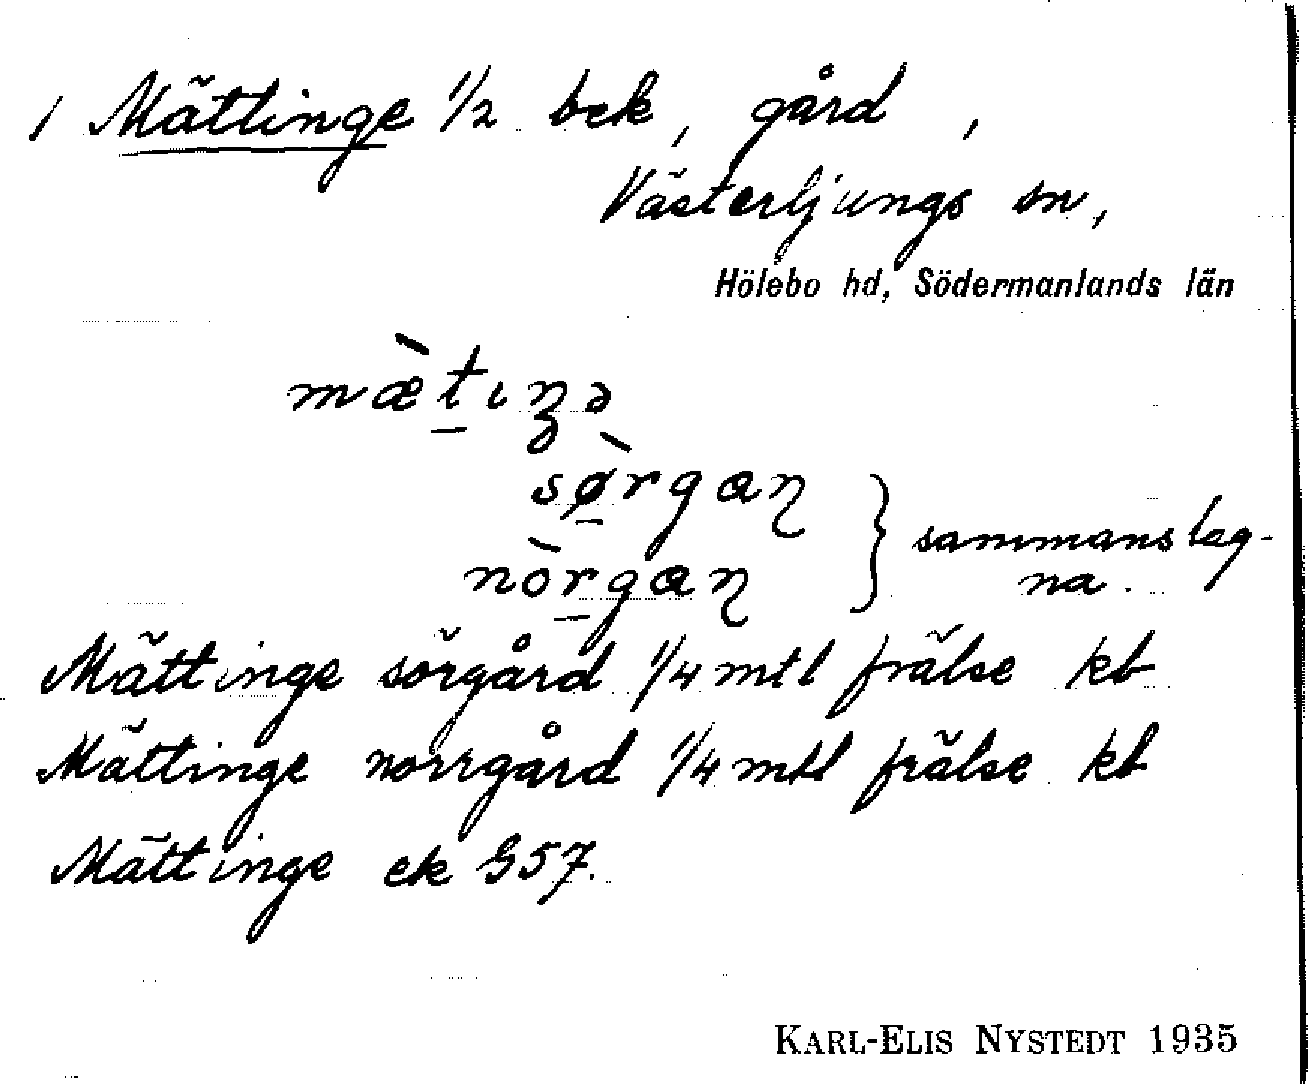 1 Mättinge 1/2 bek, gård,
Västerljungs sn,
Hölebo hd, Södermanlands län
mæ̀tıŋə
sø̀rgaɳ
nòrgaɳ } sammanslag-
na.
Mättinge sörgård 1/4 mtl frälse kb
Mättinge norrgård 1/4 mtl frälse kb
Mättinge ek G57.
KARL-ELIS NYSTEDT 1935